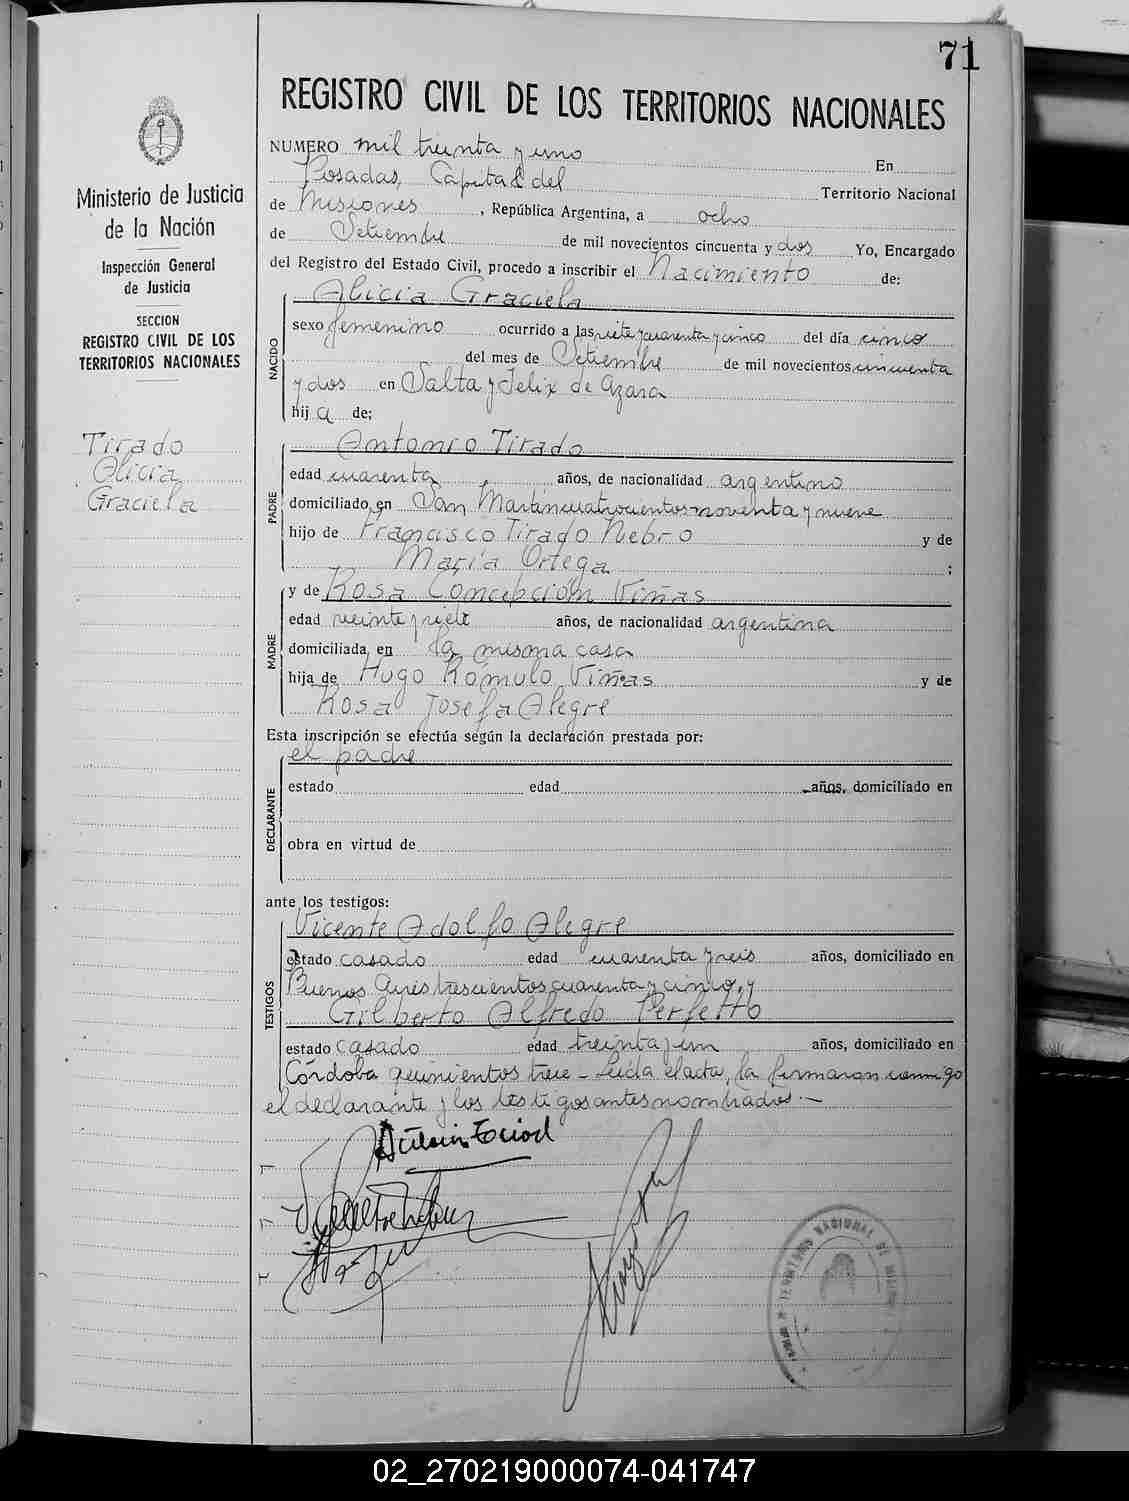 71
REGISTRO CIVIL DE LOS TERRITORIOS NACIONALES
Ministerio de Justicia
de la Nación
Inspección General
de Justicia
SECCION
REGISTRO CIVIL DE LOS
TERRITORIOS NACIONALES
Tirado
Alicia
Graciela
NUMERO mil treinta y uno En
Posadas, Capital del Territorio Nacional
de Misiones, República Argentina, a ocho
de Setiembre de mil novecientos cincuenta y dos Yo, Encargado
del Registro del Estado Civil, procedo a inscribir el Nacimiento de:
NACIDO
Alicia Graciela
sexo femenino ocurrido a las siete y cuarenta y cinco del día cinco
del mes de Setiembre de mil novecientos cincuenta
y dos en Salta y Felix de Azara
hij a de;
PADRE
Antonio Tirado
edad cuarenta años, de nacionalidad argentino
domiciliado en San Martin cuatrocientos noventa y nueve
hijo de Francisco Tirado Nebro y de
María Ortega ;
MADRE
y de Rosa Concepción Viñas
edad veinte y siete años, de nacionalidad argentina
domiciliada en la misma casa
hija de Hugo Rómulo Viñas y de
Rosa Josefa Alegre
Esta inscripción se efectúa según la declaración prestada por:
DECLARANTE
el padre
estado edad años, domiciliado en
obra en virtud de
ante los testigos:
TESTIGOS
Vicente Adolfo Alegre
estado casado edad cuarenta y seis años, domiciliado en
Buenos Aires trescientos cuarenta y cinco, y
Gilberto Alfredo Perfetto
estado casado edad treinta y un años, domiciliado en
Córdoba quinientos trece - Leída el acta, la firmaron conmigo
el declarante y los testigos antes nombrados.-
TERRITORIO NACIONAL DE
02_270219000074-041747